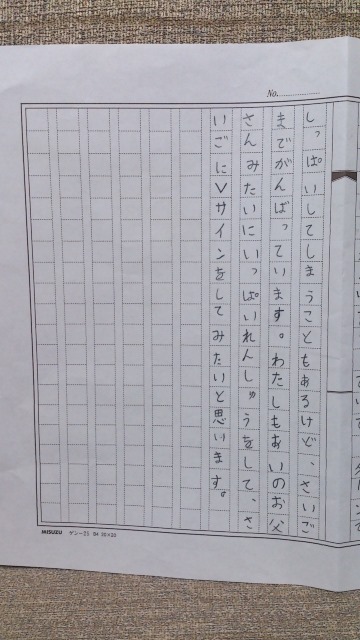 No.
しっぱいしてしまうこともあるけど、さいご
までがんばっています。わたしもあいのお父
さんみたいにいっぱいれんしゅうをして、さ
いごにVサインをしてみたいと思います。
MISUZU ゲンー25 B4 20×20